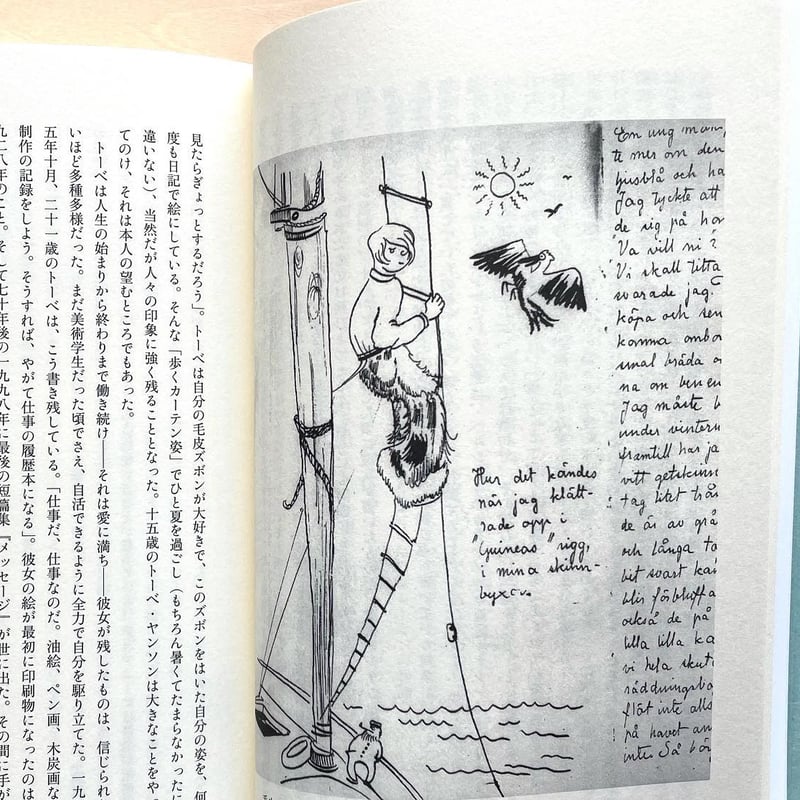 見たらぎょっとするだろう」。トーベは自分の毛皮ズボンが大好きで、このズボンをはいた自分の姿を、何
度も日記で絵にしている。そんな「歩くカーテン姿」でひと夏を過ごし（もちろん暑くてたまらなかったに
違いない）、当然だが人々の印象に強く残ることとなった。十五歳のトーベ・ヤンソンは大きなことをや
てのけ、それは本人の望むところでもあった。
トーベは人生の始まりから終わりまで働き続け——それは愛に満ち——彼女が残したものは、信じられ
いほど多種多様だった。まだ美術学生だった頃でさえ、自活できるように全力で自分を駆り立てた。一九
五年十月、二十一歳のトーベは、こう書き残している。「仕事だ、仕事なのだ。油絵、ペン画、木炭画な
制作の記録をしよう。そうすれば、やがて仕事の履歴本になる」。彼女の絵が最初に印刷物になったのは
九二八年のこと。そして七十年後の一九九八年に最後の短篇集『メッセージ』が世に出た。その間に手が
Hur det kändes
när jag klätt-
rade opp i
"Guineas" rigg,
i mina skinn-
byxor.
En ung man
te mer om den
ljusblå och ha
Jag tyckte att
de sig på
"Va vill ni?
"Vi skall titta
svarade jag.
köpa och
komma ombo
smal bräda o
na om ben en
Jag måste b
under vintern
framtill har ja
vitt getskinn
tag litet hår
de är av grå
och långa
bit svart
blir förbluffa
också de på
lilla lilla ka
vi hela skut
räddningsbå
flöt inte alls
på havet
inte. Så